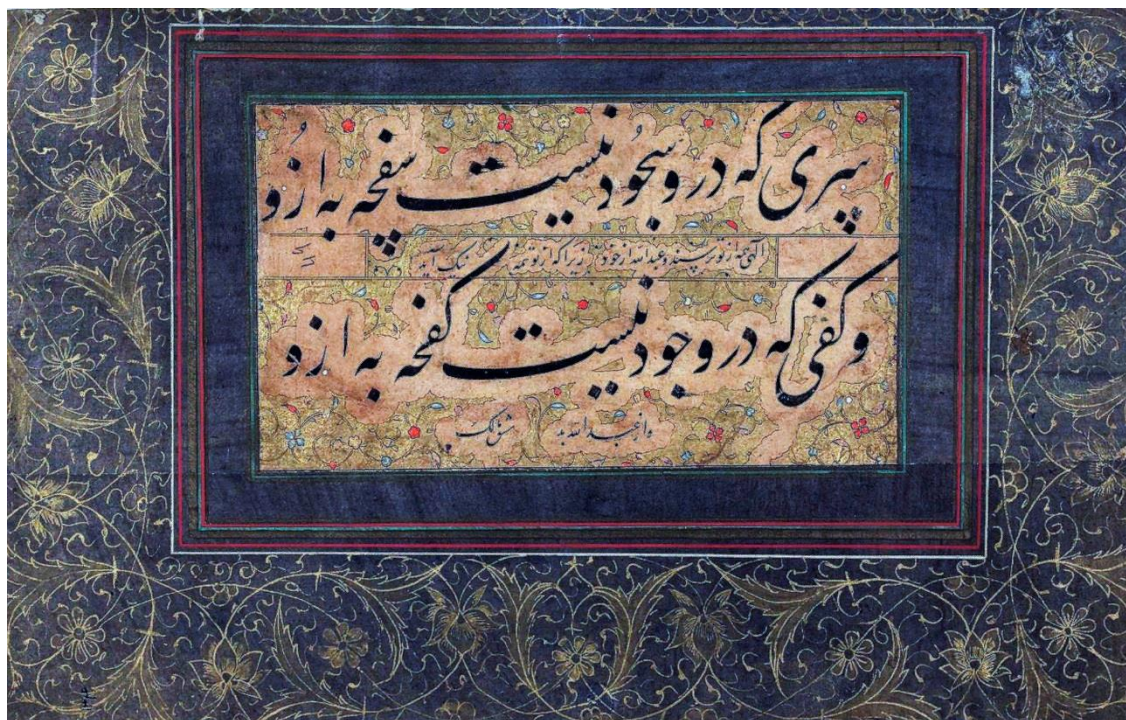 سری که درو سجود نیست سفچه به ازو
الهی همه از تو ترسند و عبدالله از خود زیرا که از تو همه نیک آید
و کفی که درو جود نیست کفچه به ازو
و از عبدالله بد مشق مالک